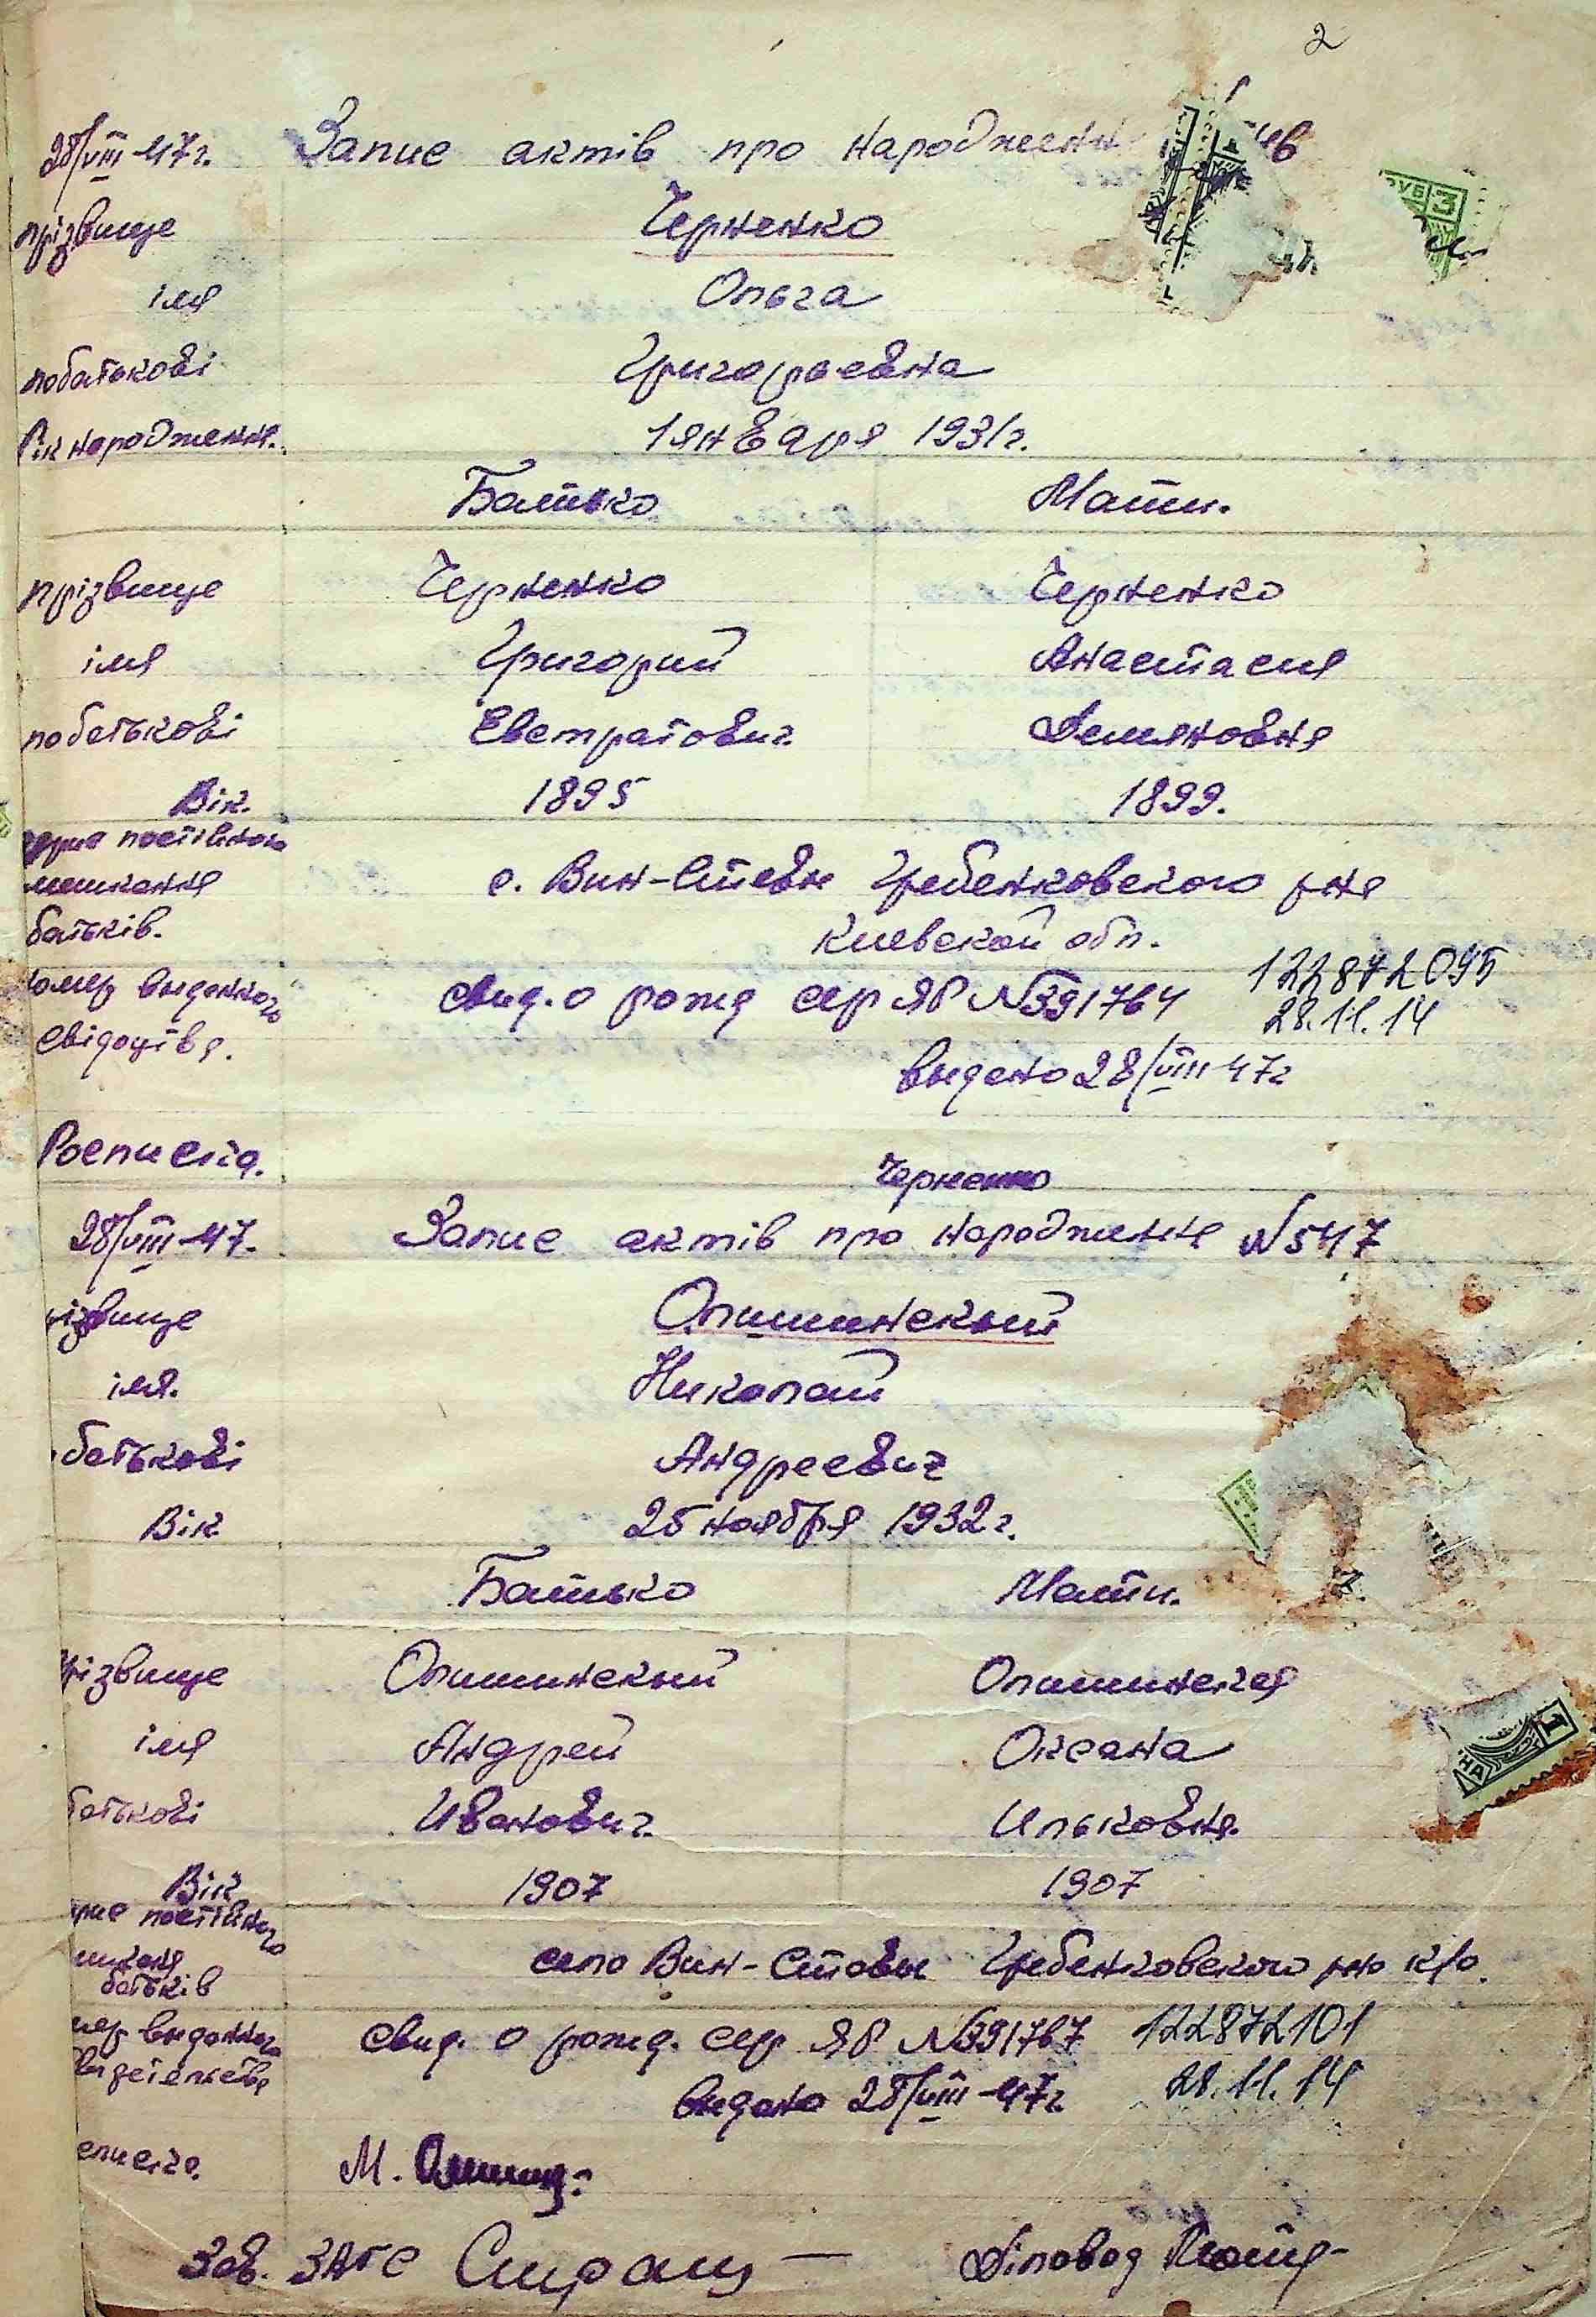 2
28/VIII-47г. Запис актів про народженн
прізвище Черненко
імя Ольга
побатькові Григорьевна
Рік народження. 1 января 1931г.
Батько Мати.
прізвище Черненко Черненко
імя Григорий Анастасия
побатькові Евстратович Демяновна
Вік. 1895 1899.
постійного
мешкання с. Вин-Ставы Гребенковского р-на
батьків. Киевской обл.
номер виданного свид. о рожд сер ЯР №391764 122872095
свідоцтва. 28.11.14
видано 28/VIII-47г
Росписка. Черненко
28/VIII-47. Запис актів про народження №547
різвище Олишинский
імя. Николай
батькові Андреевич
Вік 25 ноября 1932г.
Батько Мати.
різвище Олишинский Олишинская
імя Андрей Оксана
батькові Иванович Ильковна.
Вік 1907 1907
постійного
село Вин-Ставы Гребенковского р-на к/о.
батьків
мер виданного свид. о рожд. сер ЯР №391767 122872101
видано 28/VIII-47г 28.11.14
М.
Зав. ЗАГС Діловод
РУБ 3
НА 1